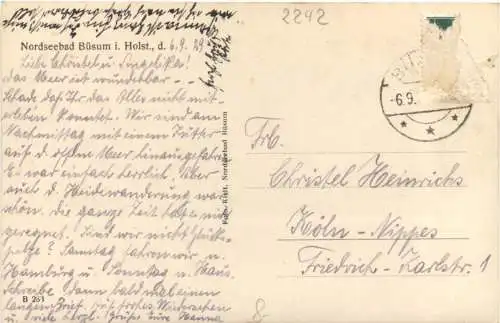 2242
Nordseebad Büsum i. Holst., d. 6.9.29
Liebe Christel u. Angelika!
das Meer ist wunderbar -
Schade daß Ihr das Alles nicht mit-
erleben konntet. Wir sind am
Nachmittag mit einem Kutter
auf d. offene Meer hinausgefahren
Es war einfach herrlich. Aber
auch d. Heidewanderung war
schön. Die ganze Zeit hat es nicht
geregnet. Sind wir nicht Glücks-
pilze? Samstag fahren wir n.
Hamburg u. Sonntag n. Haus.
Schreibe Dann bald mal einen
langen Brief. Auf frohes Wiedersehen
u. viele herzl. Grüße Eure Hanna
B 251
Foto: Nordseebad Büsum
BÜ
-6.9.
Frl.
Christel Heinrichs
Köln-Nippes
Friedrich-Karlstr. 1
8